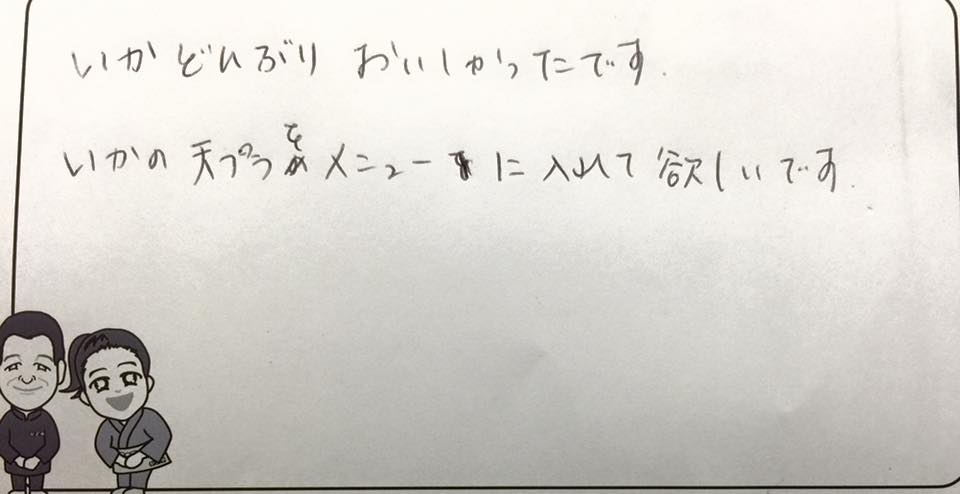 いかどんぶり おいしかったです.
いかの天プラをメニューに入れて欲しいです.